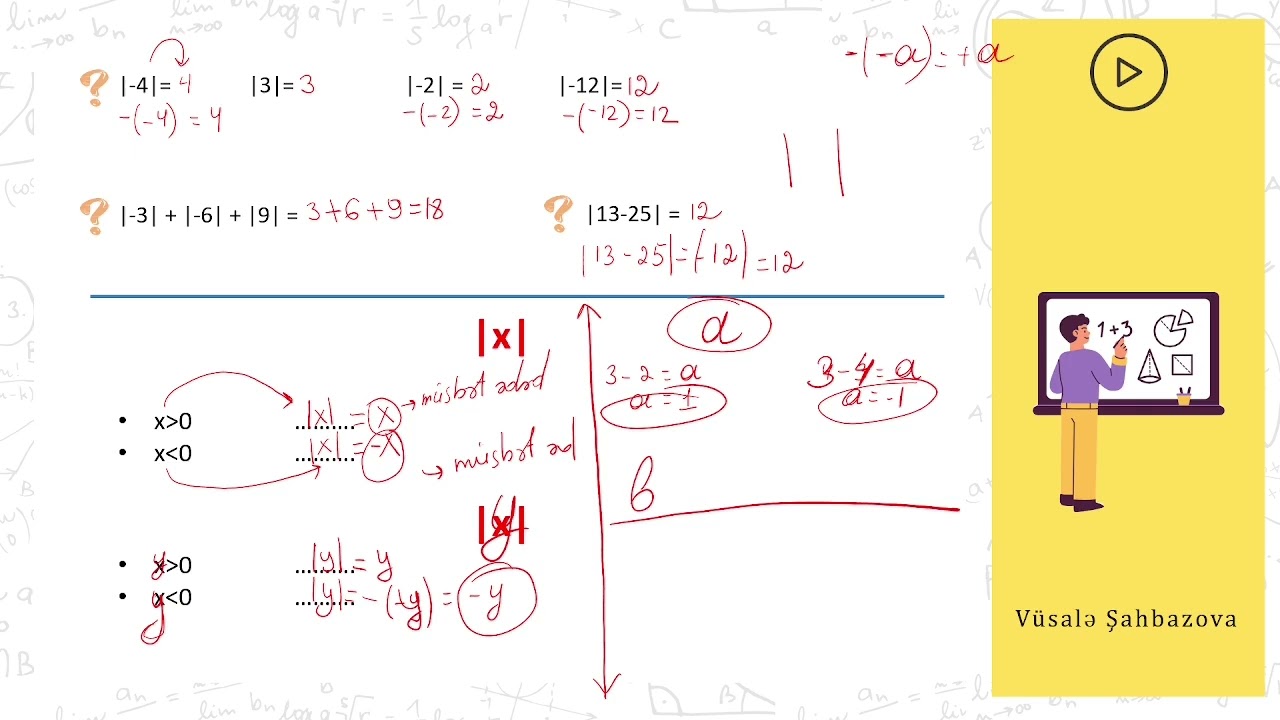 |-4|= 4
-(-4) = 4
|3|= 3
|-2| = 2
-(-2) = 2
|-12|= 12
-(-12) = 12
-(-a) = +a
| |
|-3| + |-6| + |9| = 3+6+9=18
|13-25| = 12
|13-25|=|-12|=12
|x|
• x>0 .......... |x| = x → müsbət ədəd
• x<0 .......... |x| = -x → müsbət əd
a
3-2=a
a=1
3-4=a
a=-1
b
|x| y
• x>0 y .......... |y| = y
• x<0 y .......... |y|= -(+y) = -y
1+3
Vüsalə Şahbazova